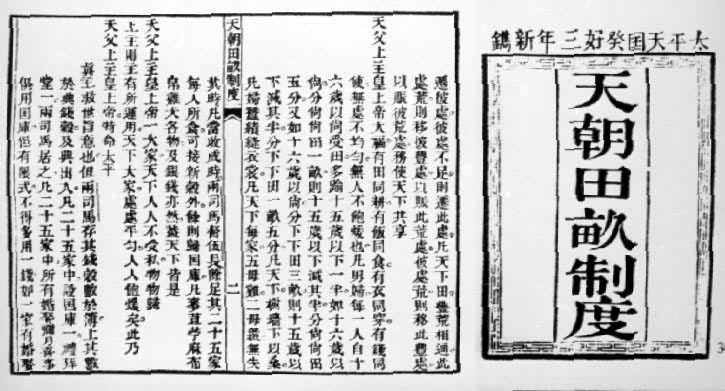 太平天囯癸好三年新鐫
天朝田畝制度
遷彼處彼處不足則遷此處凡天下田豐荒相通此
處荒則移彼豐處以賑此荒處彼處荒則移此豐處
以賑彼荒處務使天下共享
天父上主皇上帝大福有田同耕有飯同食有衣同穿有錢同
使無處不均勻無人不飽煖也凡男婦每一人自十
六歲以尙受田多踰十五歲以下一半如十六歲以
尙分尙尙田一畝則十五歲以下減其半分尙尙田
五分又如十六歲以尙分下下田三畝則十五歲以
下減其半分下下田一畝五分凡天下樹墻下以桑
凡婦蠶績縫衣裳凡天下每家五母雞二母彘無失
天朝田畝制度 二
其時凡當收成時兩司馬督伍長除足其二十五家
每人所食可接新穀外餘則歸國庫凡麥荳苧麻布
帛雞犬各物及銀錢亦然蓋天下皆是
天父上主皇上帝一大家天下人人不受私物物歸
上主則主有所運用天下大家處處平勻人人飽煖矣此乃
天父上主皇上帝特命太平
眞主救世旨意也但兩司馬存其錢穀數於簿上其數
於典錢穀及典出入凡二十五家中設國庫一禮拜
堂一兩司馬居之凡二十五家中所有婚娶彌月喜事
俱用国庫但有限式不得多用一錢如一家有婚娶